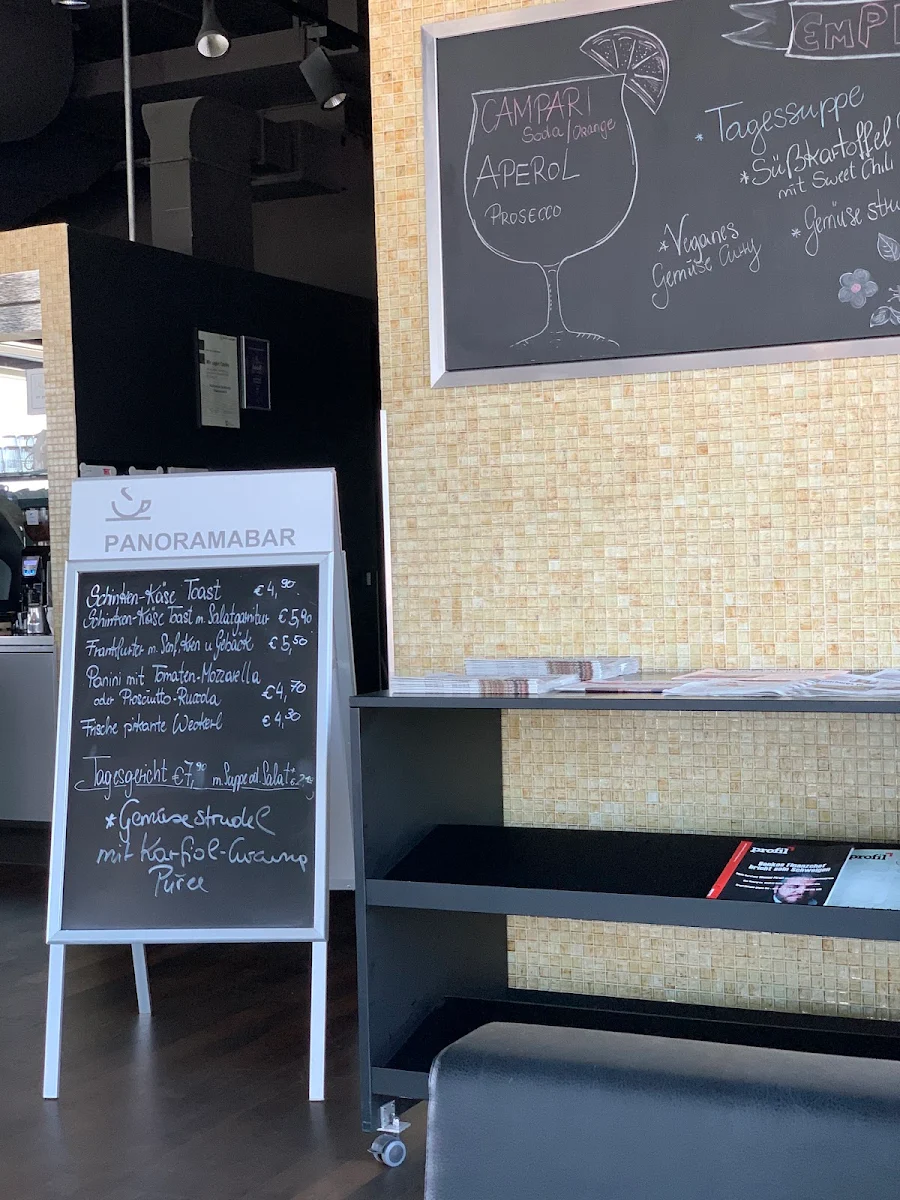 CAMPARI
Soda/Orange
APEROL
PROSECCO
EMP
*Tagessuppe
*Süßkartoffel
mit Sweet Chili
*Gemüse stru
*Veganes
Gemüse Curry
PANORAMABAR
Schinken-Käse Toast €4,90
Schinken-Käse Toast m. Salatgarnitur €5,40
Frankfurter m. Senf, Kren u Gebäck €5,50
Panini mit Tomaten-Mozarella
oder Prosciutto-Rucola €4,70
Frische pikante Weckerl €4,30
Tagesgericht €7,90 m. Suppe od. Salat
*Gemüsestrudel
mit Karfiol-Curcuma
Püree
profil
profil